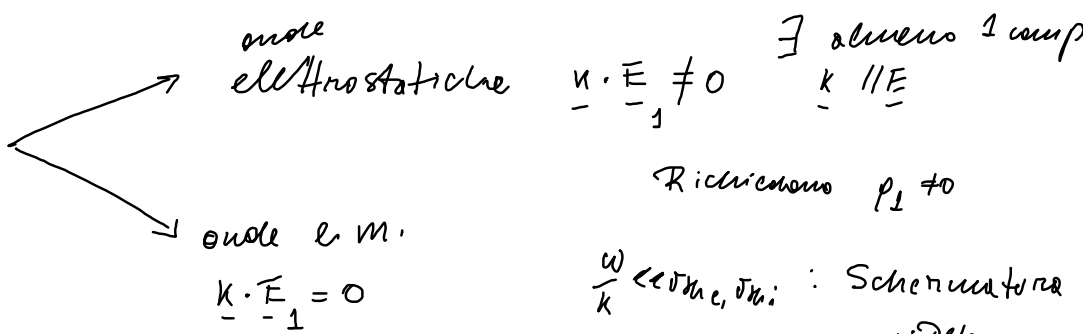 onde
elettrostatiche k · E₁ ≠ 0
∃ almeno 1 comp
k // E
Richiedono ρ₁ ≠ 0
onde e.m.
k · E₁ = 0
ω/k << vthe, vthi : Schermatura